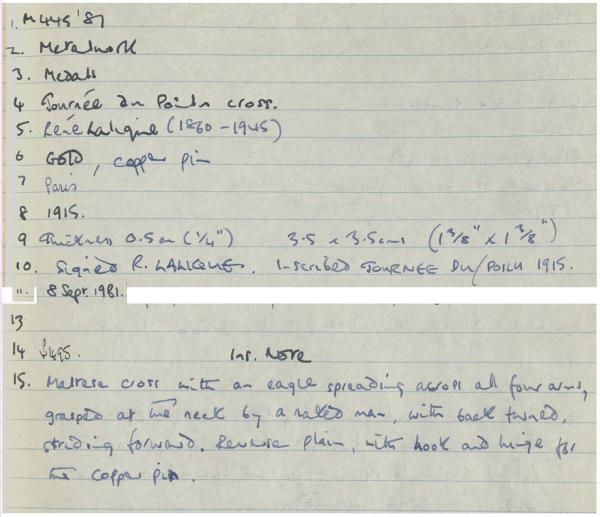 1. M445'81
2. Metalwork
3. Medals
4 Journée du Poilu cross.
5. René Lalique (1860-1945)
6 GOLD, copper pin
7 Paris
8 1915.
9 Thickness 0.5cm (1/4") 3.5 x 3.5cms (1 3/8" x 1 3/8")
10. Signed R. LALIQUE. Inscribed JOURNEE DU/POILU 1915.
11. 8 Sept. 1981.
13
14 $495. Ins. Note
15. Maltese cross with an eagle spreading across all four arms,
grasped at the neck by a naked man, with back turned,
striding forward. Reverse plain, with hook and hinge for
the copper pin.